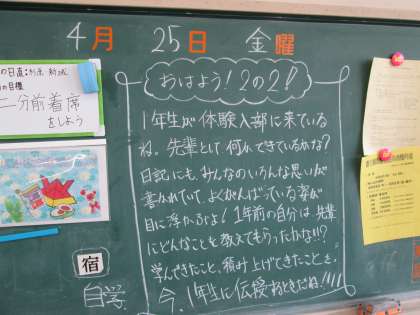 4月 25日 金曜
の日直:
の目標
二分前着席
をしよう
おはよう!2の2!
1年生が体験入部に来ている
ね。先輩として何れできているかな?
日記にも、みんなのいろんな思いが
書かれていて、よくがんばっている姿が
目に浮かぶよ!1年前の自分は先輩
にどんなことを教えてもらったかな!!?
学んできたこと、積み上げてきたことを、
今、1年生に伝授するときだね!!!!
宿
自学